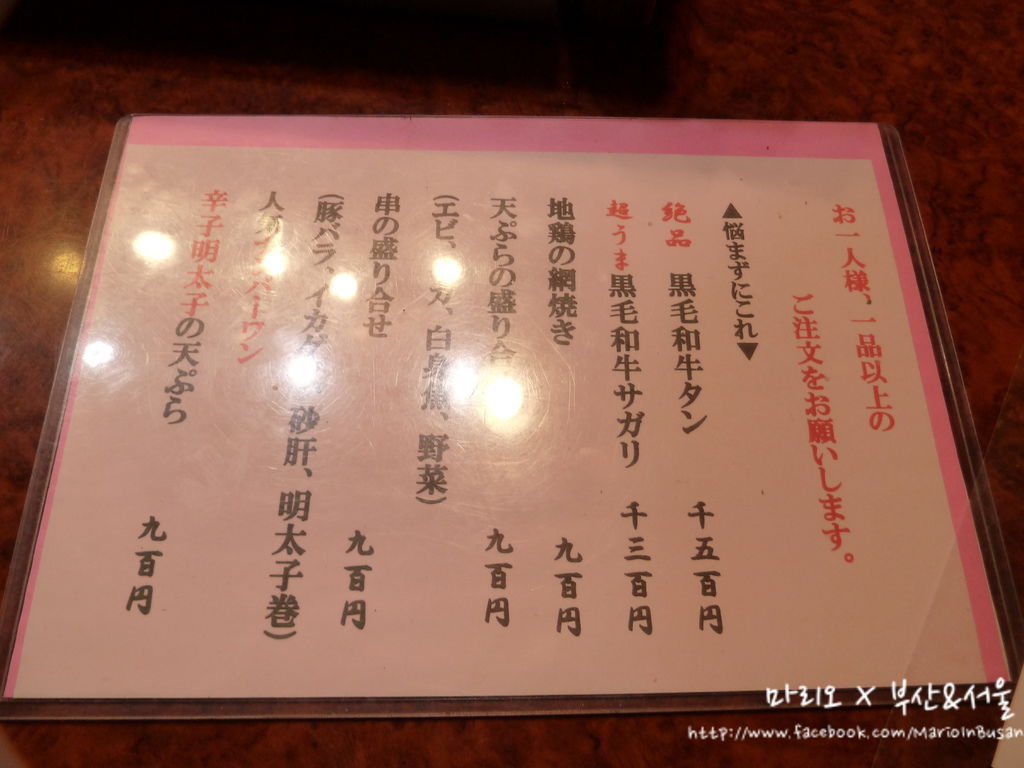 お一人様、一品以上の
ご注文をお願いします。
▲悩まずにこれ▼
絶品 黒毛和牛タン 千五百円
超うま黒毛和牛サガリ 千三百円
地鶏の網焼き 九百円
天ぷらの盛り合 九百円
(エビ、カ、白身魚、野菜)
串の盛り合せ 九百円
(豚バラ、イカゲ、砂肝、明太子巻)
人気ナンバーワン
辛子明太子の天ぷら 九百円
마리오 X 부산&서울
http://www.facebook.com/MarioInBusan